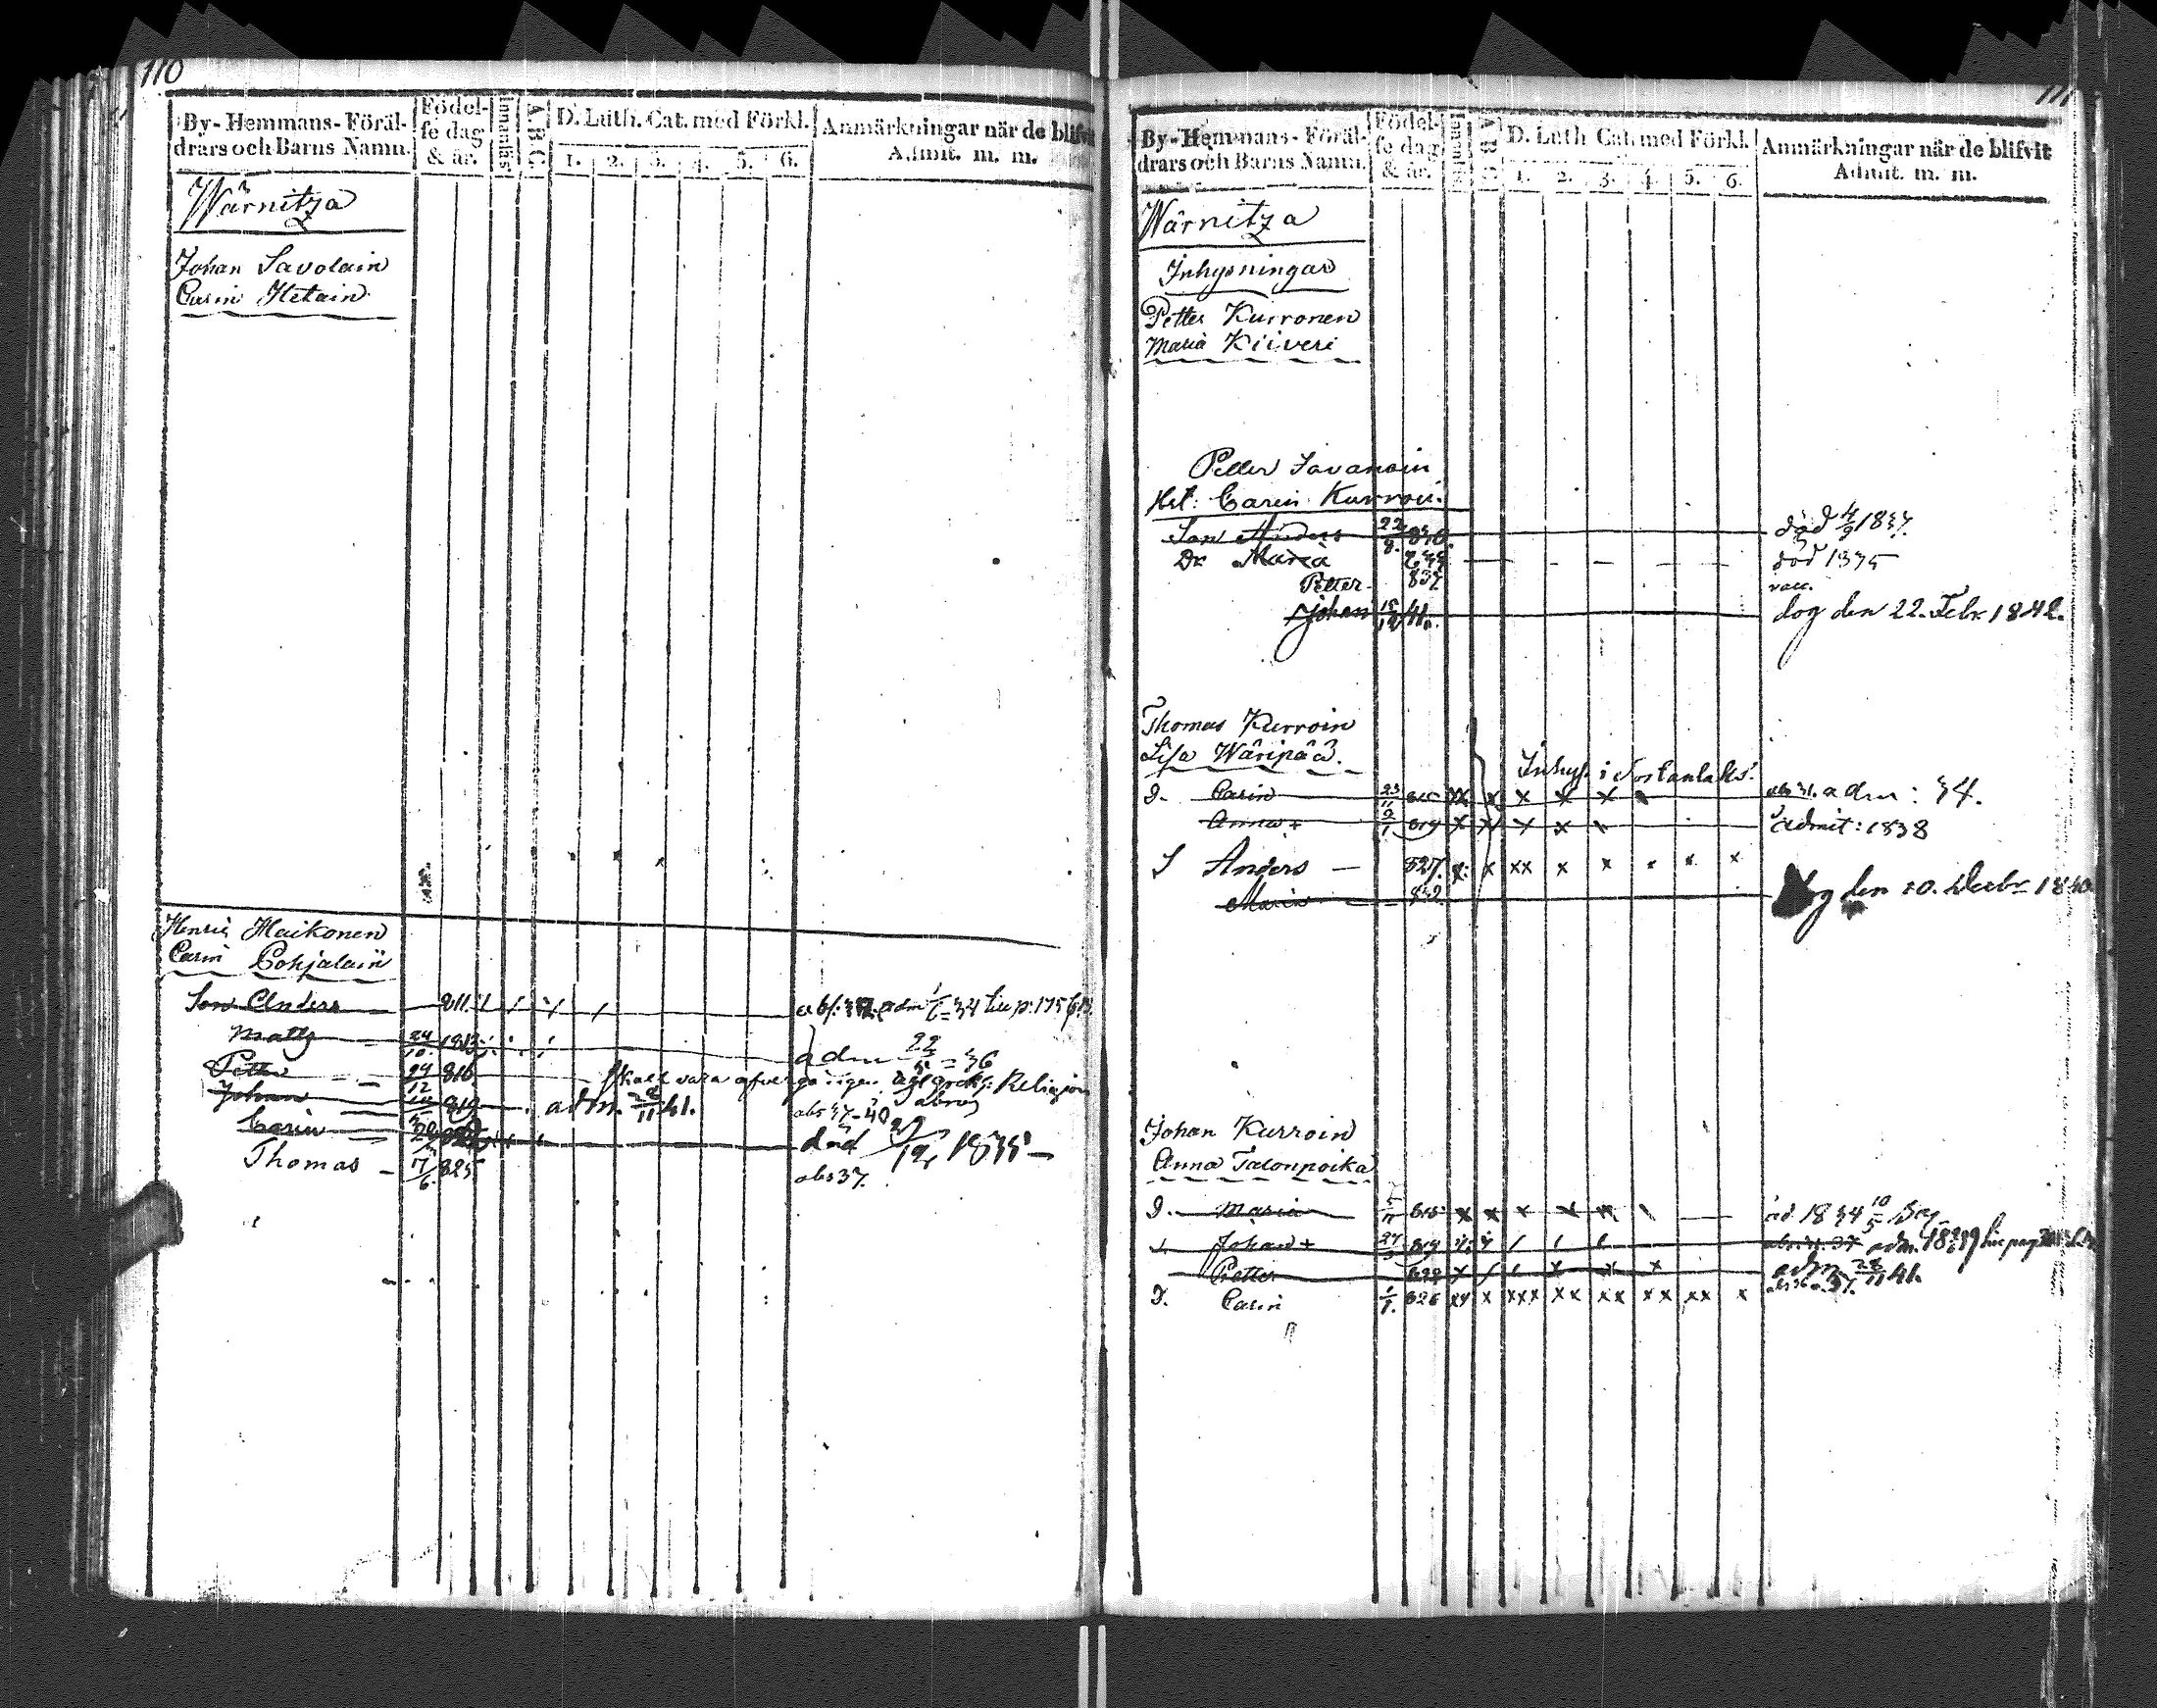 110
By-Hemmans-Föräl-
drars och Barns Namn.
Födel-
se dag
& år.
Innanläs
A B C
D. Luth. Cat. med Förkl.
1. 2. 3. 4. 5. 6.
Anmärkningar når de blifvit
Admit. m. m.
Wärnitza
Johan Savolain
Carin Hetain
Henric Haikonen
Carin Pohjalain
Son Anders 811
Matts 24/10 1813 adm 22/5 = 36
Petter 24/12 816 skall vara öfvergången till grek: Religion
Johan 819 adm. 28/11 41. abs 37-40
Carin död 1835
Thomas - 7/6 825 abs 37.
111
By-Hemmans-Föräl-
drars och Barns Namn.
Födel-
se dag
& år.
Innanläs
A B C
D. Luth Cat. med Förkl.
1. 2. 3. 4. 5. 6.
Anmärkningar når de blifvit
Admit. m. m.
Wärnitza
Inhysningar
Petter Kurronen
Maria Kiiveri
Petter Savanain
Hst: Carin Kurroi.
Son Anders 22/8. död 4/9 1837.
Dr Maria död 1835
Petter 837 vacc.
Johan 41. dog den 22. Febr. 1842.
Thomas Kurroin
Lisa Wäripää.
Inhys. i
D. Carin 23/11 xx x x x x adm: 34.
Anna + 2/1 819 x x x x admit: 1838
S Anders — 827. x x xx x x x x x
Maria dog den 20. Decbr 1840
Johan Kurroin
Anna Talonpoika
D. Maria 815 x x x x x ad 1834 10/5
Johan + 27 819 adm. 1839
Petter 822 x x x x adm. 28/11 41.
D. Carin 826 xx x xxx xx xx xx xx x abs 36 o. 37.